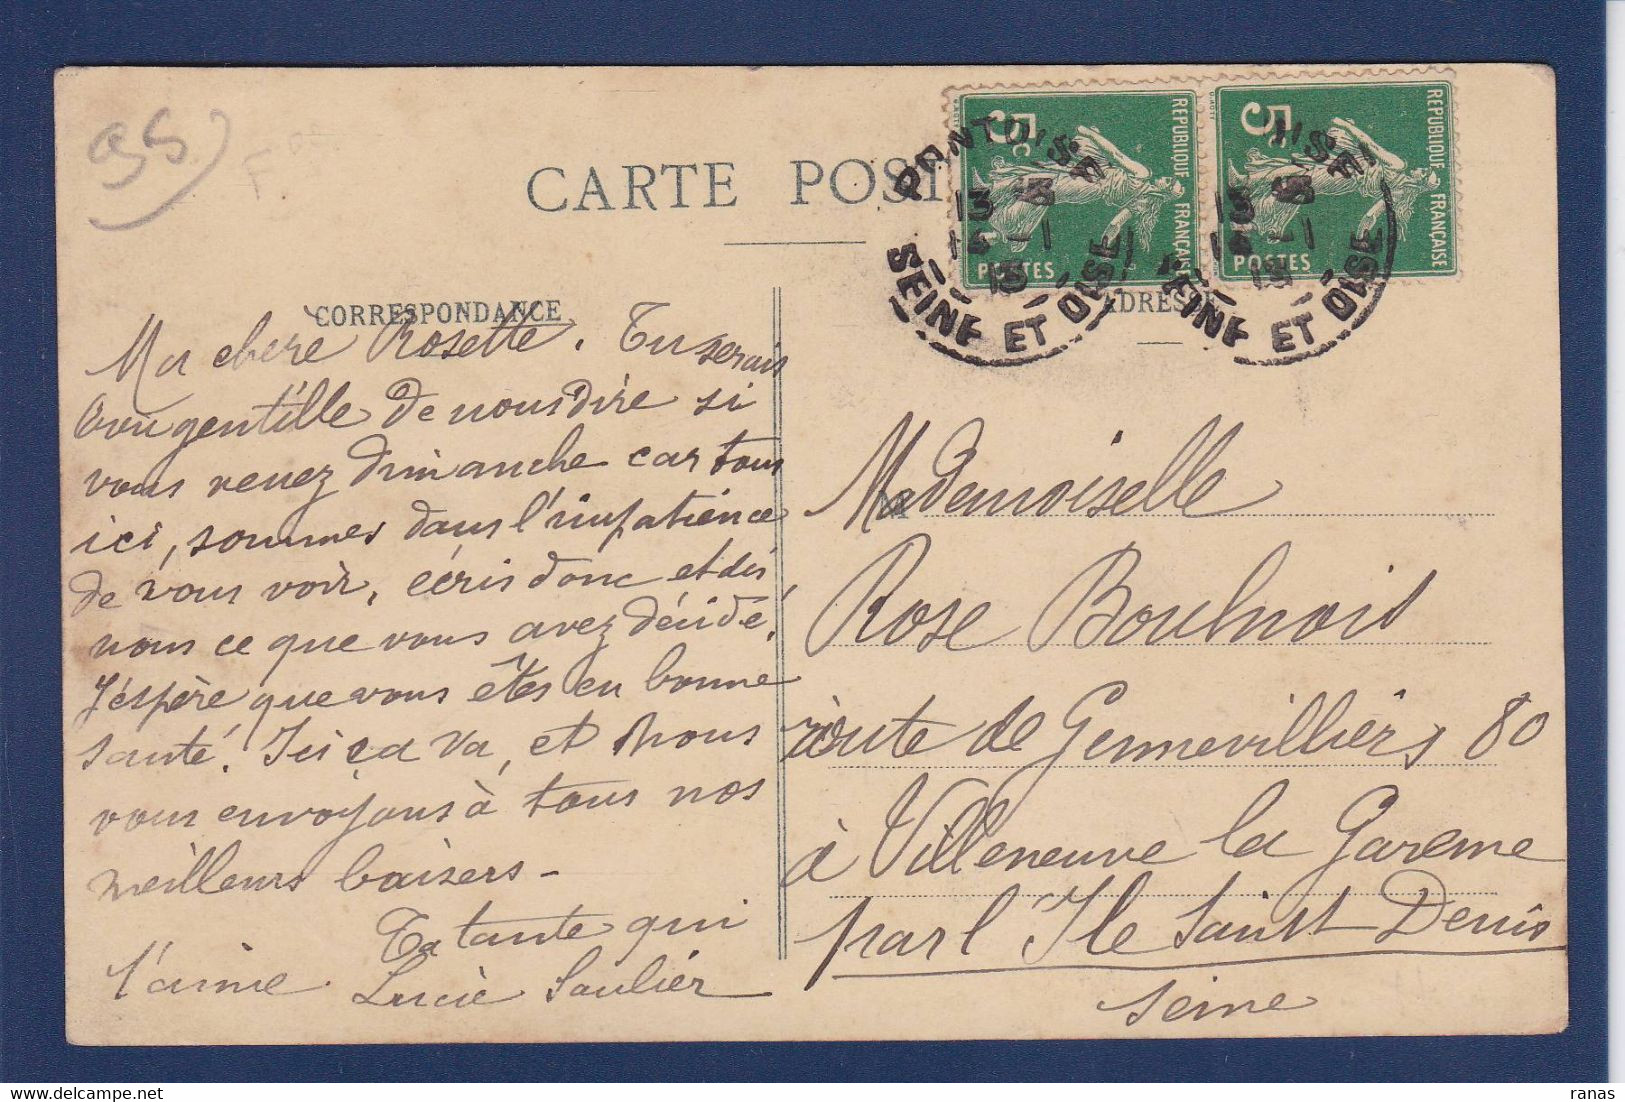 95
CARTE POS
CORRESPONDANCE
ADRESS
REPUBLIQUE FRANÇAISE
5c
POSTES
REPUBLIQUE FRANÇAISE
5
POSTES
PONTOISE
SEINE ET OISE
OISE
SEINE ET OISE
Ma chère Rosette. Tu serais
bien gentille de nous dire si
vous venez dimanche car tous
ici, sommes dans l'impatience
de vous voir, écris donc et dis
nous ce que vous avez décidé.
J'espère que vous êtes en bonne
santé. Ici ça va, et nous
vous envoyons à tous nos
meilleurs baisers -
Ta tante qui
t'aime Lucie Saulier
Mademoiselle
Rose Boulnois
route de Gennevilliers 80
à Villeneuve la Garenne
par l'Ile Saint Denis
Seine
ranas